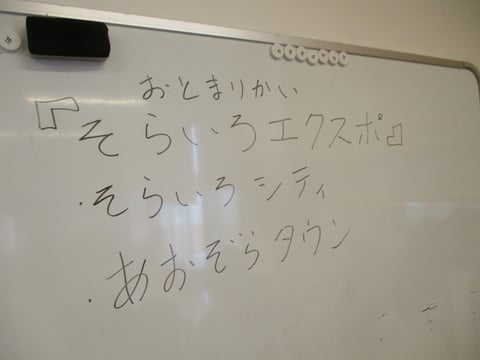 おとまりかい
『そらいろエクスポ』
・そらいろシティ
・あおぞらタウン